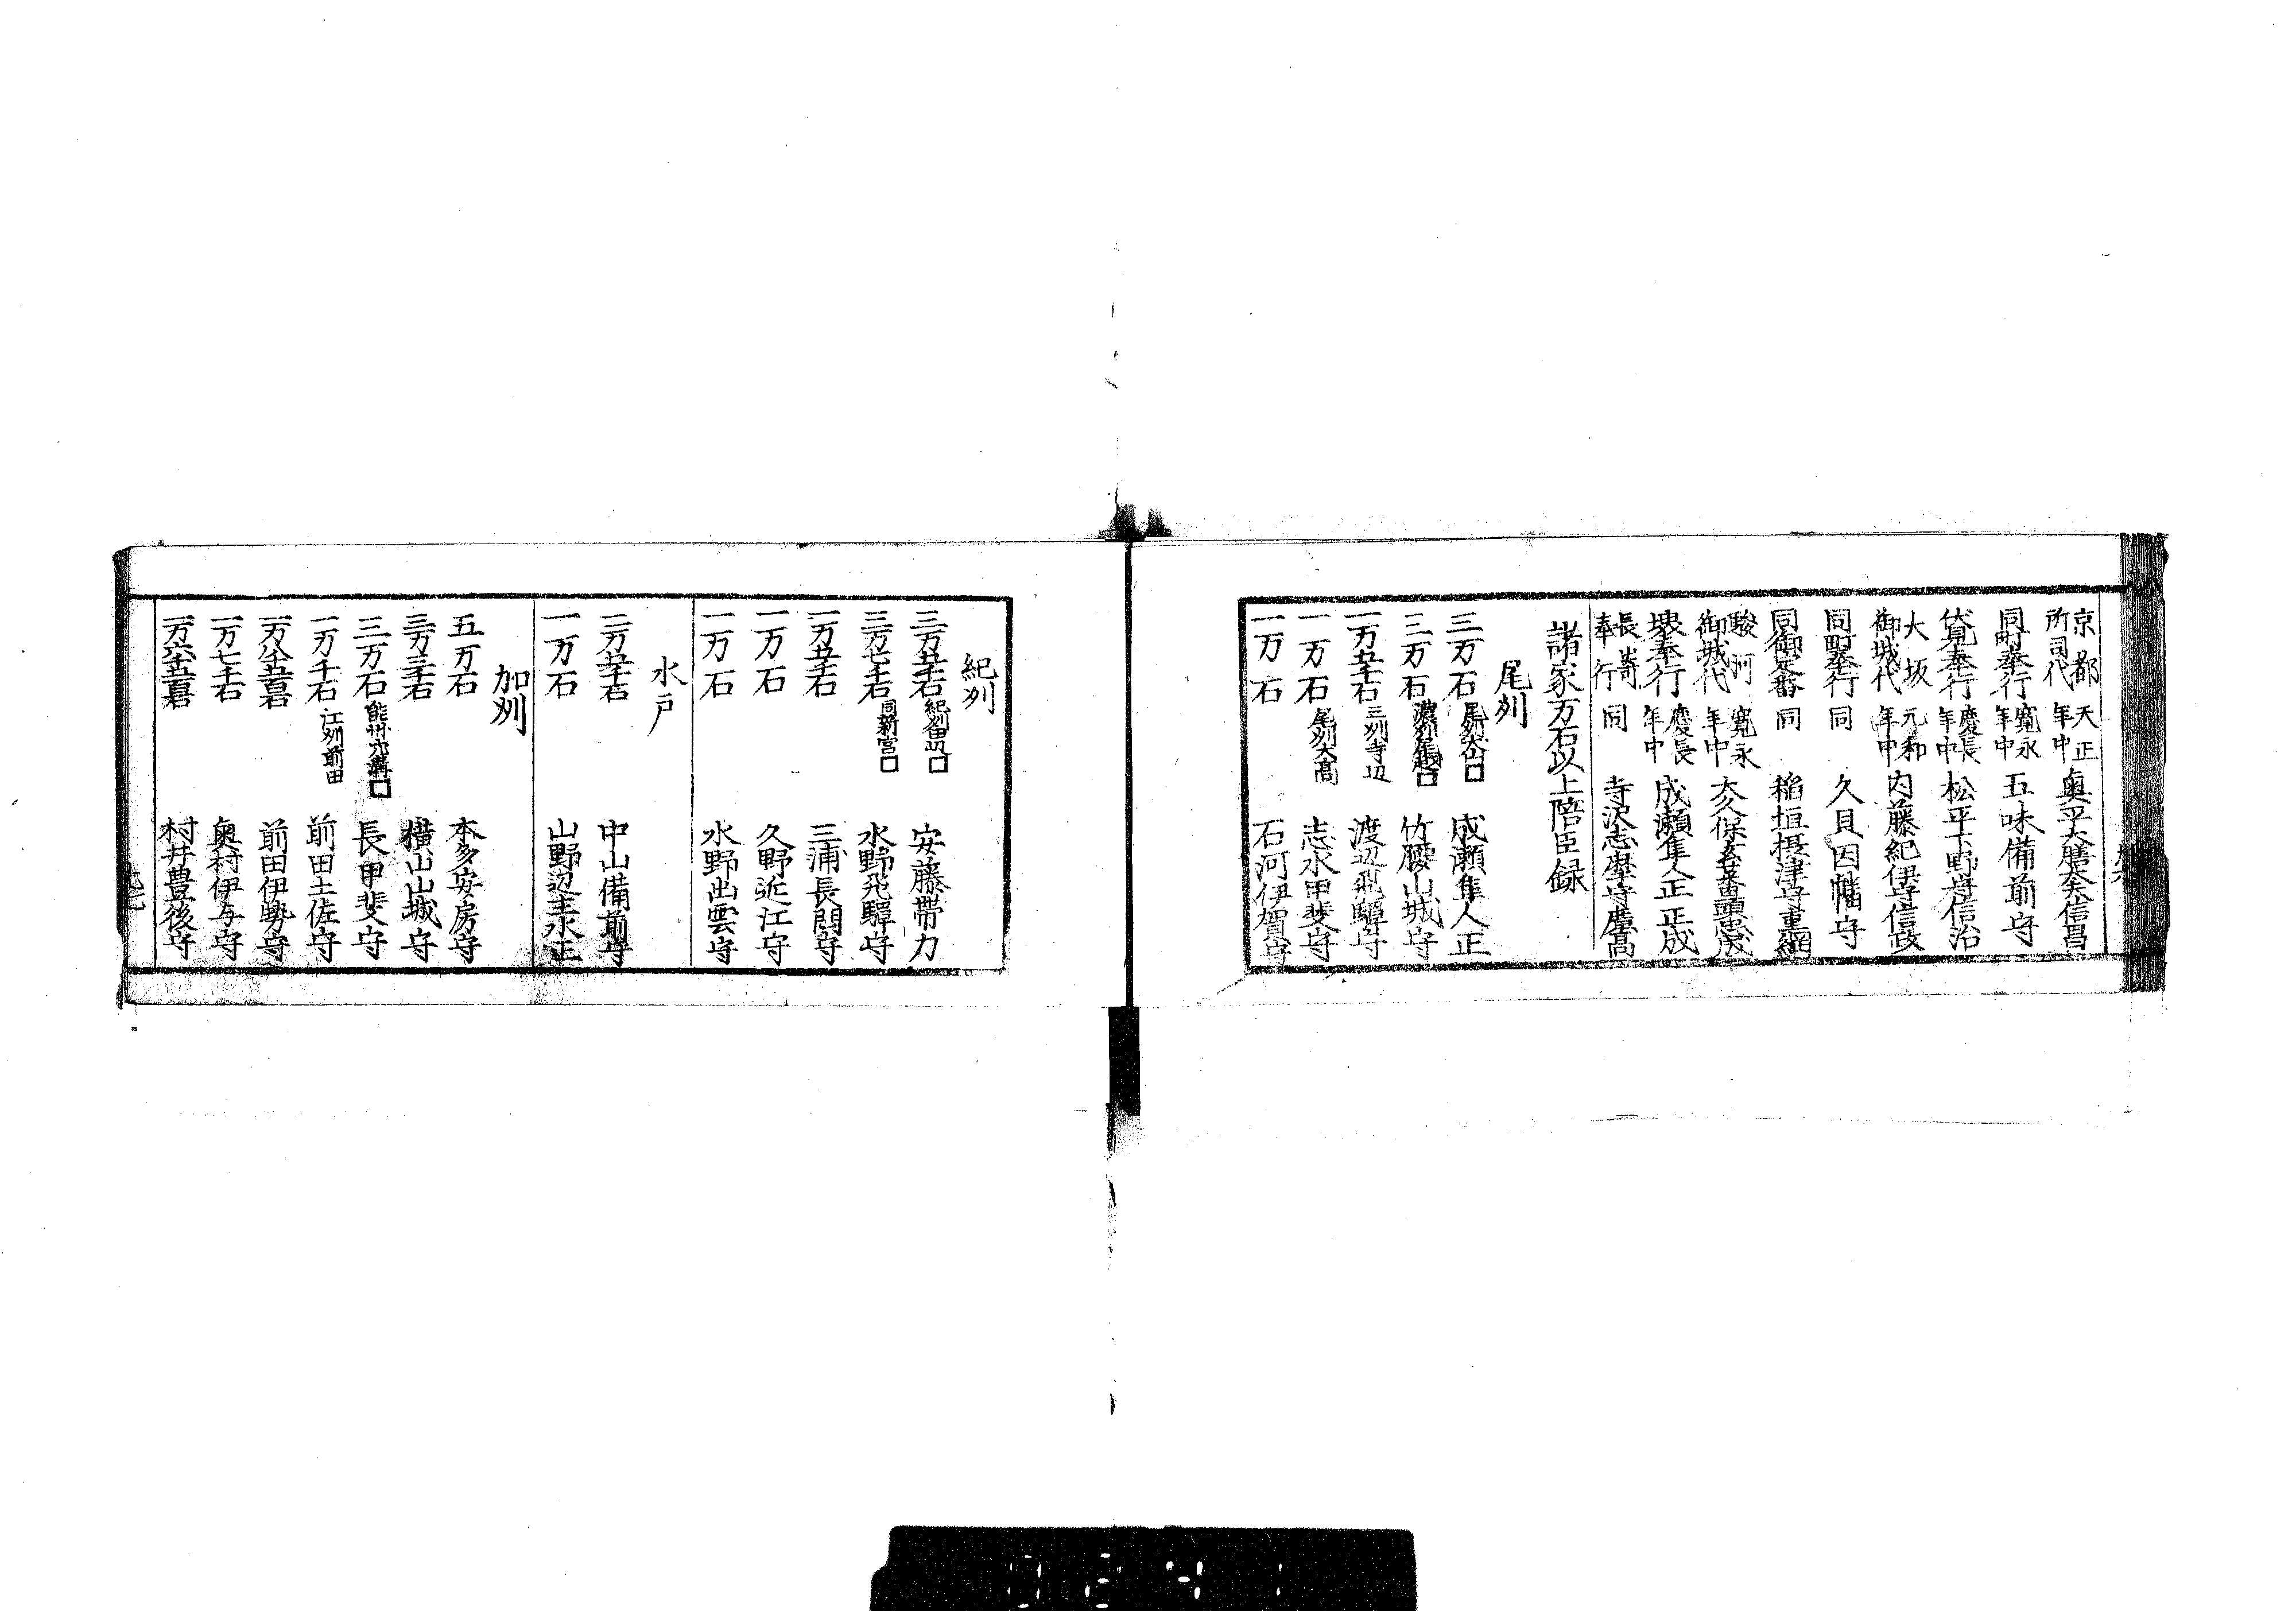 京都所司代 天正年中 奥平大膳太夫信昌
同町奉行 寛永年中 五味備前守
伏見奉行 慶長年中 松平下野守信治
大坂御城代 元和年中 内藤紀伊守信政
同町奉行 同 久貝因幡守
同御定番 同 稲垣摂津守重綱
駿河御城代 寛永年中 大久保玄蕃頭忠成
堺奉行 慶長年中 成瀬隼人正正成
長崎奉行 同 寺沢志摩守廣高
諸家万石以上陪臣録
尾州
三万石 尾州犬山□ 成瀬隼人正
三万石 濃州今尾□ 竹腰山城守
一万五千石 三州寺辺 渡辺飛騨守
一万石 尾州大高 志水甲斐守
一万石 石河伊賀守
紀州
三万五千石 紀州田辺□ 安藤帯刀
三万七千石 同新宮□ 水野飛騨守
一万五千石 三浦長門守
一万石 久野近江守
一万石 水野出雲守
水戸
二万五千石 中山備前守
一万石 山野辺主水正
加州
五万石 本多安房守
三万三千石 横山山城守
三万石 能州穴溝□ 長甲斐守
一万千石 江州前田 前田土佐守
一万八千五百石 前田伊勢守
一万七千石 奥村伊与守
一万六千五百石 村井豊後守